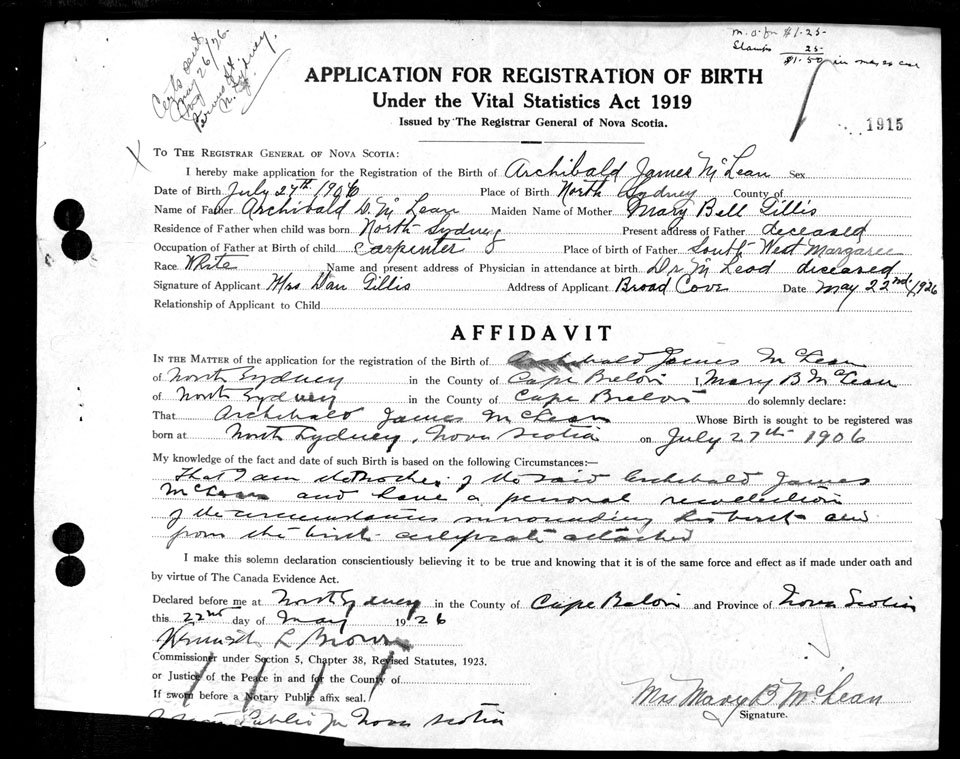 Certs sent
May 26/26
Permns St
N. Sydney.
m.o. for $1.25
Stamps 25
$1.50
APPLICATION FOR REGISTRATION OF BIRTH
Under the Vital Statistics Act 1919
Issued by The Registrar General of Nova Scotia.
1915
X
TO THE REGISTRAR GENERAL OF NOVA SCOTIA:
I hereby make application for the Registration of the Birth of Archibald James McLean Sex
Date of Birth July 27th 1906 Place of Birth North Sydney County of
Name of Father Archibald D. McLean Maiden Name of Mother Mary Bell Gillis
Residence of Father when child was born North Sydney Present address of Father deceased
Occupation of Father at Birth of child Carpenter Place of birth of Father South West Margaree
Race White Name and present address of Physician in attendance at birth Dr McLeod deceased
Signature of Applicant Mrs Dan Gillis Address of Applicant Broad Cove Date May 22nd, 1926
Relationship of Applicant to Child
AFFIDAVIT
IN THE MATTER of the application for the registration of the Birth of Archibald James McLean
of North Sydney in the County of Cape Breton I, Mary B McLean
of North Sydney in the County of Cape Breton do solemnly declare:
That Archibald James McLean Whose Birth is sought to be registered was
born at North Sydney, Nova Scotia on July 27th 1906
My knowledge of the fact and date of such Birth is based on the following Circumstances:—
That I am the Mother of the said Archibald James
McLean and have a personal recollection
of the circumstances surrounding his birth and
from the birth certificate attached
I make this solemn declaration conscientiously believing it to be true and knowing that it is of the same force and effect as if made under oath and
by virtue of The Canada Evidence Act.
Declared before me at North Sydney in the County of Cape Breton and Province of Nova Scotia
this 22nd day of May 1926
Kenneth L Brown
Commissioner under Section 5, Chapter 38, Revised Statutes, 1923.
or Justice of the Peace in and for the County of
If sworn before a Notary Public affix seal.
Mrs Mary B McLean
Signature.
A Notary Public for Nova Scotia